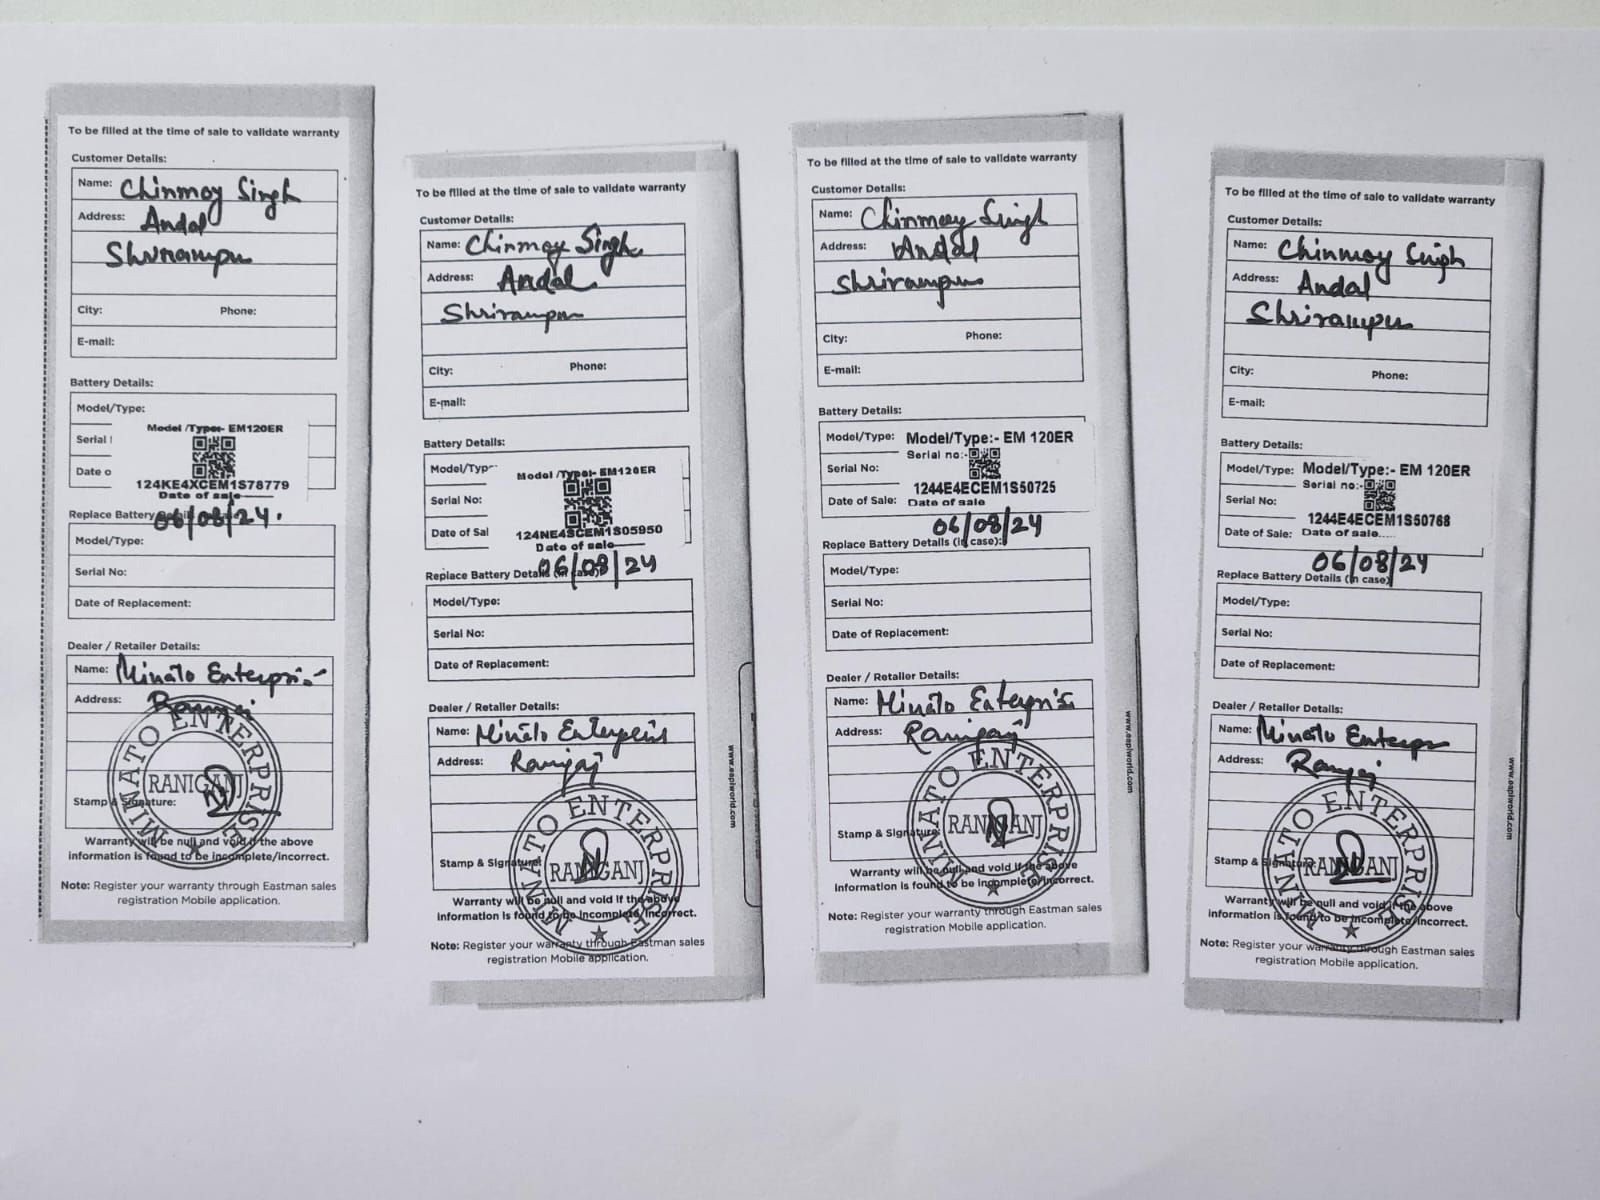 To be filled at the time of sale to validate warranty
Customer Details:
Name: Chinmoy Singh
Address: Andal
City: Phone:
E-mail:
Battery Details:
Model/Type:
Model /Type:- EM120ER
Serial
Date o
124KE4XCEM1S78779
Date of sale
06/08/24.
Replace Battery
Model/Type:
Serial No:
Date of Replacement:
Dealer / Retailer Details:
Name: Minato
Address:
MINATO ENTERPRISE
RANIGANJ
Stamp & Signature:
Warranty will be null and void if the above
information is found to be incomplete/incorrect.
Note: Register your warranty through Eastman sales
registration Mobile application.
To be filled at the time of sale to validate warranty
Customer Details:
Name: Chinmoy Singh
Address: Andal
Shrirampur
City: Phone:
E-mail:
Battery Details:
Model/Typ
Model /Type:- EM120ER
Serial No:
Date of Sal
124NE4SCEM1S05950
Date of sale
06/08/24
Replace Battery Details (in case):
Model/Type:
Serial No:
Date of Replacement:
Dealer / Retailer Details:
Name: Minato
Address:
MINATO ENTERPRISE
RANIGANJ
Stamp & Signature:
Warranty will be null and void if the above
information is found to be incomplete/incorrect.
Note: Register your warranty through Eastman sales
registration Mobile application.
www.eaplworld.com
To be filled at the time of sale to validate warranty
Customer Details:
Name: Chinmoy Singh
Address: Andal
Shrirampur
City: Phone:
E-mail:
Battery Details:
Model/Type: Model/Type:- EM 120ER
Serial no:-
Serial No:
1244E4ECEM1S50725
Date of Sale: Date of sale
06/08/24
Replace Battery Details (in case):
Model/Type:
Serial No:
Date of Replacement:
Dealer / Retailer Details:
Name: Minato
Address:
MINATO ENTERPRISE
RANIGANJ
Stamp & Signature:
Warranty will be null and void if the above
information is found to be incomplete/incorrect.
Note: Register your warranty through Eastman sales
registration Mobile application.
www.eaplworld.com
To be filled at the time of sale to validate warranty
Customer Details:
Name: Chinmoy Singh
Address: Andal
Shrirampur
City: Phone:
E-mail:
Battery Details:
Model/Type: Model/Type:- EM 120ER
Serial no:-
Serial No:
1244E4ECEM1S50768
Date of Sale: Date of sale.....
06/08/24
Replace Battery Details (in case)
Model/Type:
Serial No:
Date of Replacement:
Dealer / Retailer Details:
Name: Minato
Address:
MINATO ENTERPRISE
RANIGANJ
Stamp & Signature:
Warranty will be null and void if the above
information is found to be incomplete/incorrect.
Note: Register your warranty through Eastman sales
registration Mobile application.
www.eaplworld.com